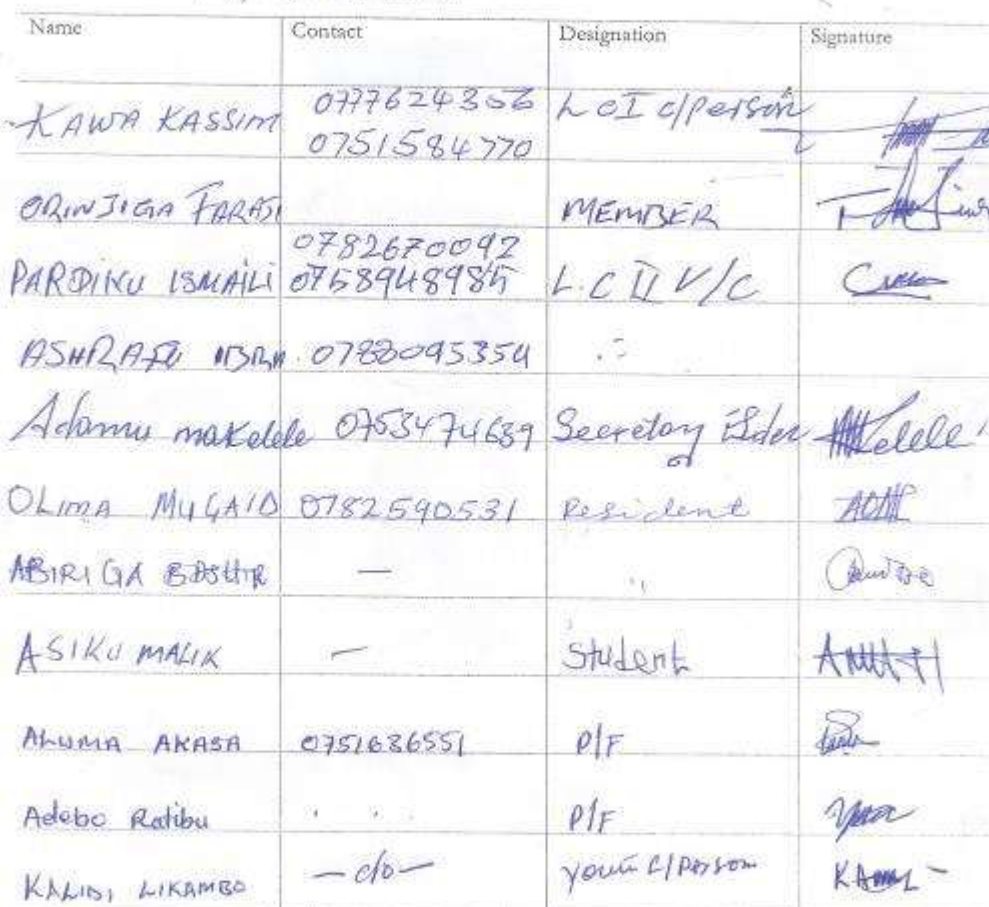 Name Contact Designation Signature
KAWA KASSIM 0777624356 LCI c/person
0751584770
ORINJIGA FARAJI MEMBER
0782670092
PARDIKU ISMAILI 0758948985 L.C II V/C
ASHRAFU 0788095354
Adamu makelele 0753474689 Secretary Elder
OLIMA MUGAID 0782590531 Resident
ABIRIGA BASHIR — "
ASIKU MALIK — Student
ALUMA AKASA 0751636551 P/F
Adebo Ratibu " " P/F
KALIDI LIKAMBO — c/o — youth C/Person